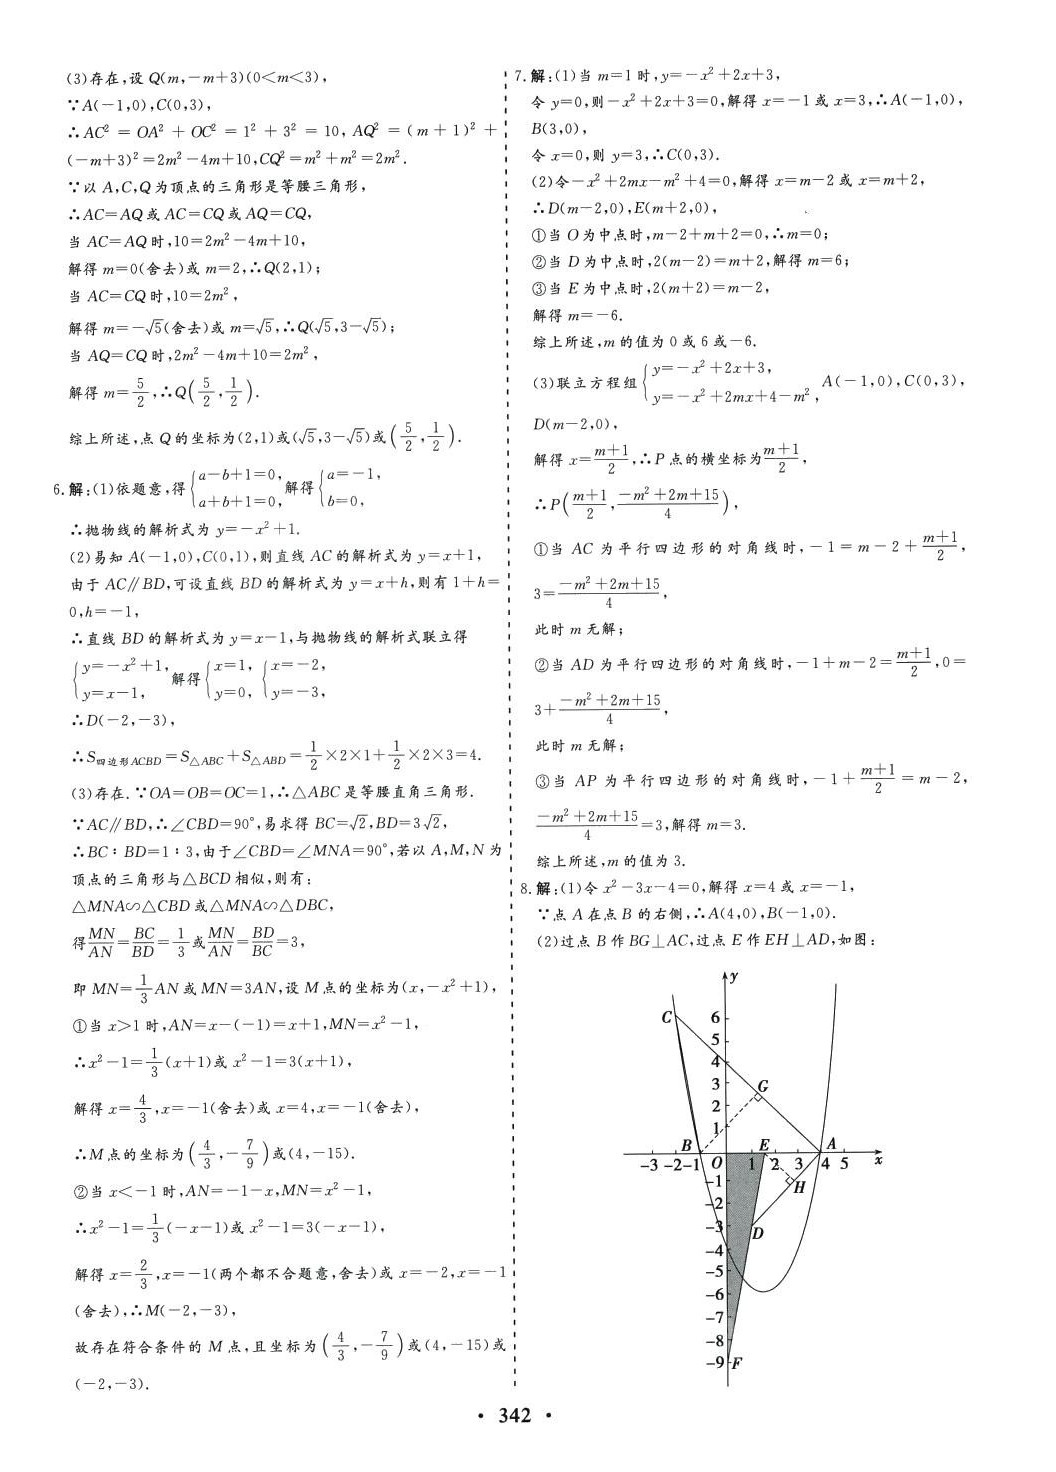 (3)存在,设 Q(m,-m+3)(0<m<3),
∵A(-1,0),C(0,3),
∴AC² = OA² + OC² = 1² + 3² = 10, AQ² = (m+1)² +
(-m+3)²=2m²-4m+10,CQ²=m²+m²=2m².
∵以 A,C,Q为顶点的三角形是等腰三角形,
∴AC=AQ或AC=CQ或AQ=CQ,
当 AC=AQ时,10=2m²-4m+10,
解得 m=0(舍去)或 m=2,∴Q(2,1);
当 AC=CQ时,10=2m²,
解得 m=-√5(舍去)或 m=√5,∴Q(√5,3-√5);
当 AQ=CQ时,2m²-4m+10=2m²,
解得 m=5/2,∴Q(5/2,1/2).
综上所述,点 Q的坐标为(2,1)或(√5,3-√5)或(5/2,1/2).
6.解:(1)依题意,得{a-b+1=0, a+b+1=0, 解得{a=-1, b=0,
∴抛物线的解析式为 y=-x²+1.
(2)易知 A(-1,0),C(0,1),则直线 AC的解析式为 y=x+1,
由于 AC∥BD,可设直线 BD的解析式为 y=x+h,则有1+h=
0,h=-1,
∴直线 BD的解析式为 y=x-1,与抛物线的解析式联立得
{y=-x²+1, y=x-1, 解得{x=1, y=0, {x=-2, y=-3,
∴D(-2,-3),
∴S四边形ACBD=S△ABC+S△ABD=1/2×2×1+1/2×2×3=4.
(3)存在.∵OA=OB=OC=1,∴△ABC是等腰直角三角形.
∵AC∥BD,∴∠CBD=90°,易求得 BC=√2,BD=3√2,
∴BC∶BD=1∶3,由于∠CBD=∠MNA=90°,若以 A,M,N为
顶点的三角形与△BCD相似,则有:
△MNA∽△CBD或△MNA∽△DBC,
得MN/AN=BC/BD=1/3或MN/AN=BD/BC=3,
即 MN=1/3AN或 MN=3AN,设 M点的坐标为(x,-x²+1),
①当 x>1时,AN=x-(-1)=x+1,MN=x²-1,
∴x²-1=1/3(x+1)或 x²-1=3(x+1),
解得 x=4/3,x=-1(舍去)或 x=4,x=-1(舍去),
∴M点的坐标为(4/3,-7/9)或(4,-15).
②当 x<-1时,AN=-1-x,MN=x²-1,
∴x²-1=1/3(-x-1)或 x²-1=3(-x-1),
解得 x=2/3,x=-1(两个都不合题意,舍去)或 x=-2,x=-1
(舍去),∴M(-2,-3),
故存在符合条件的 M点,且坐标为(4/3,-7/9)或(4,-15)或
(-2,-3).
7.解:(1)当 m=1时,y=-x²+2x+3,
令 y=0,则-x²+2x+3=0,解得 x=-1或 x=3,∴A(-1,0),
B(3,0),
令 x=0,则 y=3,∴C(0,3).
(2)令-x²+2mx-m²+4=0,解得 x=m-2或 x=m+2,
∴D(m-2,0),E(m+2,0),
①当 O为中点时,m-2+m+2=0,∴m=0;
②当 D为中点时,2(m-2)=m+2,解得 m=6;
③当 E为中点时,2(m+2)=m-2,
解得 m=-6.
综上所述,m的值为0或6或-6.
(3)联立方程组{y=-x²+2x+3, y=-x²+2mx+4-m², A(-1,0),C(0,3),
D(m-2,0),
解得 x=(m+1)/2,∴P点的横坐标为(m+1)/2,
∴P((m+1)/2,(-m²+2m+15)/4),
①当 AC为平行四边形的对角线时,-1=m-2+(m+1)/2,
3=(-m²+2m+15)/4,
此时 m无解;
②当 AD为平行四边形的对角线时,-1+m-2=(m+1)/2,0=
3+(-m²+2m+15)/4,
此时 m无解;
③当 AP为平行四边形的对角线时,-1+(m+1)/2=m-2,
(-m²+2m+15)/4=3,解得 m=3.
综上所述,m的值为3.
8.解:(1)令 x²-3x-4=0,解得 x=4或 x=-1,
∵点 A在点 B的右侧,∴A(4,0),B(-1,0).
(2)过点 B作 BG⊥AC,过点 E作 EH⊥AD,如图:
y
C
6
5
4
3
G
2
1
B
E
A
-3 -2 -1 O 1 2 3 4 5 x
-1
H
-2
-3
D
-4
-5
-6
-7
-8
-9 F
· 342 ·